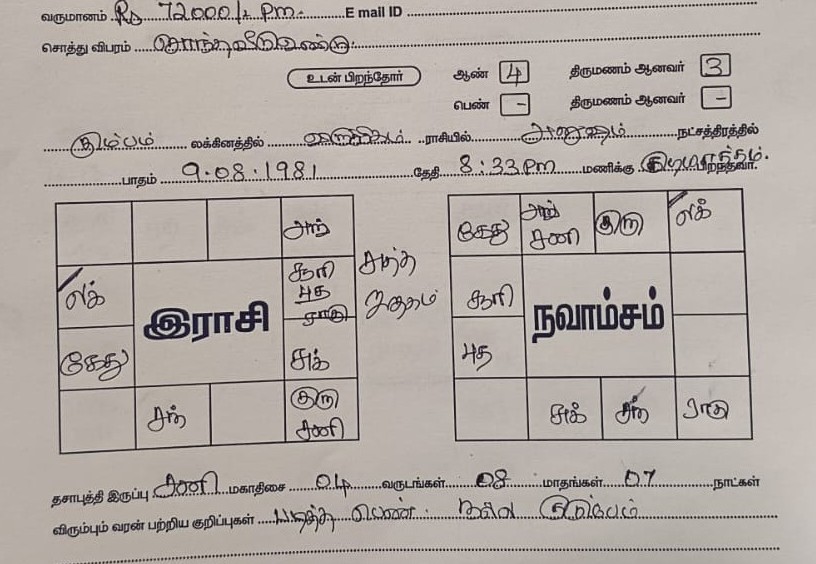 வருமானம் Rs 72000/- Pm. E mail ID
சொத்து விபரம் சொந்தவீடு உண்டு.
உடன் பிறந்தோர் ஆண் 4 திருமணம் ஆனவர் 3
பெண் - திருமணம் ஆனவர் -
கும்பம் லக்கினத்தில் விருச்சிகம் ராசியில் அனுஷம் நட்சத்திரத்தில்
பாதம் 9.08.1981 தேதி 8:33 Pm மணிக்கு பிறந்தவர்.
அங் கேது அங் சனி குரு லக்
லக் இராசி சூரி புத ராகு சுத்த ஜாதகம் சூரி நவாம்சம்
கேது சுக் புத
சந் குரு சனி சுக் சந் ராகு
தசாபுத்தி இருப்பு சனி மகாதிசை 04 வருடங்கள் 08 மாதங்கள் 07 நாட்கள்
விரும்பும் வரன் பற்றிய குறிப்புகள் படித்த பெண். நல்ல குடும்பம்